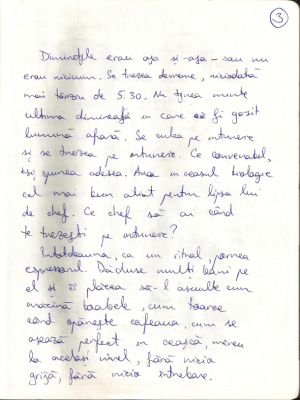 3
Diminețile erau așa și-așa - sau nu
erau nicicum. Se trezea devreme, niciodată
mai târziu de 5.30. Nu ținea minte
ultima dimineață în care să fi găsit
lumină afară. Se culca pe întuneric
și se trezea pe întuneric. Ce convenabil,
își spunea adesea. Avea în ceasul biologic
cel mai bun aliat pentru lipsa lui
de chef. Ce chef să ai când
te trezești pe întuneric?
Întotdeauna, ca un ritual, pornea
espressorul. Dăduse mulți bani pe
el și îi plăcea să-l asculte cum
macină boabele, cum toarce
când opărește cafeaua, cum se
așază perfect în ceașcă, mereu
la același nivel, fără nicio
grijă, fără nicio întrebare.